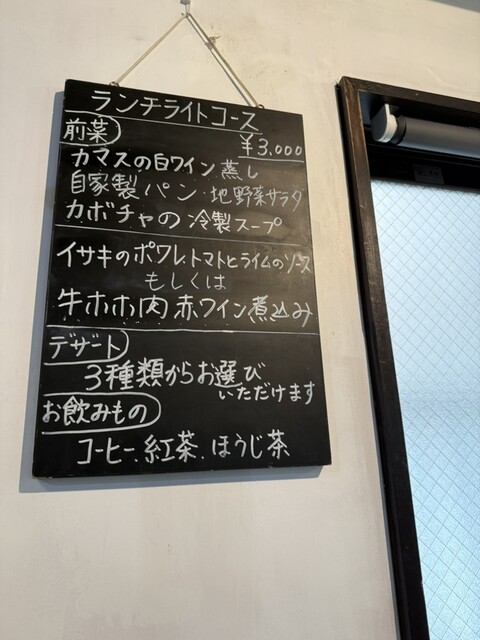 ランチライトコース
前菜
¥3,000
カマスの白ワイン蒸し
自家製パン・地野菜サラダ
カボチャの冷製スープ
イサキのポワレ、トマトとライムのソース
もしくは
牛ホホ肉赤ワイン煮込み
デザート
3種類からお選び
いただけます
お飲みもの
コーヒー、紅茶、ほうじ茶